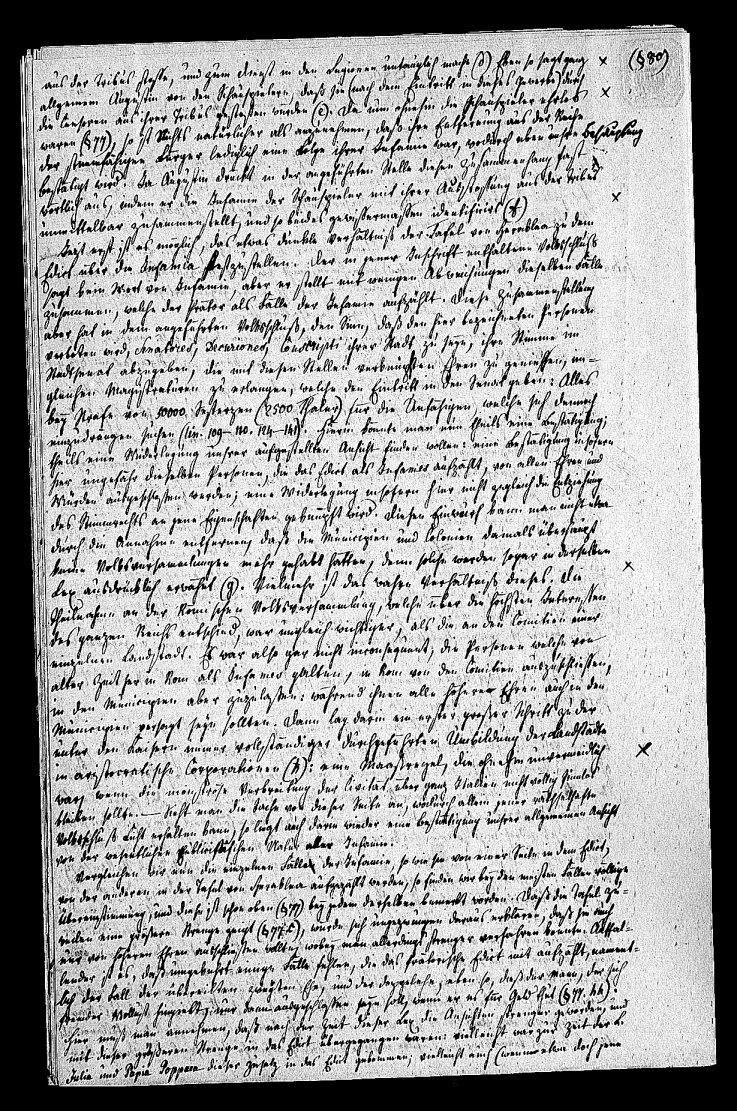 (§80)
aus der Tribus stoße, und zum Dienst in den Legionen untauglich mache (d) Eben so sagt ganz
allgemein Augustin von den Schauspielern, daß sie (nach dem Eintritt in dieses Gewerbe) durch
die Censoren aus ihrer Tribus gestoßen würden (e). Da nun ohnehin die Schauspieler ehrlos
waren (§77), so ist Nichts natürlicher als anzunehmen, daß ihre Entfernung aus der Reihe
der stimmfähigen Bürger lediglich eine Folge ihrer Infamie war, wodurch eben unsre Behauptung
bestätigt wird. Ja Augustin drückt in der angeführten Stelle diesen Zusammenhang fast
wörtlich aus, indem er die Infamie der Schauspieler mit ihrer Ausstoßung aus der Tribus
unmittelbar zusammenstellt, und so beides gewissermaßen identificirt (f)
Jetzt erst ist es möglich, das etwas dunkle Verhältniß der Tafel von Heraklea zu dem
Edict über die Infamia festzustellen. Der in jener Inschrift enthaltene Volksschluß
sagt kein Wort von Infamie, aber er stellt mit wenigen Abweichungen dieselben Fälle
zusammen, welche der Prätor als Fälle der Infamie aufzählt. Diese Zusammenstellung
aber hat in dem angeführten Volksschluß, den Sinn, daß den hier bezeichneten Personen
verboten wird, Senatores, Decuriones, Conscripti ihrer Stadt zu seyn, ihre Stimme im
Stadtsenat abzugeben, die mit diesen Stellen verknüpften Ehren zu genießen, im-
gleichen Magistraturen zu erlangen, welche den Eintritt in den Senat geben: Alles
bey Strafe von 50000 Sesterzen (2500 Thaler) für die Unfähigen, welche sich dennoch
einzudrängen suchen (lin. 109–110. 124–141). Hierin könnte man nun theils eine Bestätigung,
theils eine Widerlegung unsrer aufgestellten Ansicht finden wollen: eine Bestätigung insofern
hier ungefähr dieselben Personen, die das Edict als Infames aufzählt, von allen Ehren und
Würden ausgeschlossen werden; eine Widerlegung insofern hier nicht zugleich die Entziehung
des Stimmrechts an jene Eigenschaften geknüpft wird. Diesen Einwurf kann man nicht etwa
durch die Annahme entfernen, daß die Municipien und Colonien damals überhaupt
keine Volksversammlungen mehr gehabt hätten, denn solche werden sogar in derselben
Lex ausdrücklich erwähnt (g). Vielmehr ist das wahre Verhältniß dieses. Die
Theilnahme an der Römischen Volksversammlung, welche über die höchsten Interessen
des ganzen Reichs entschied, war ungleich wichtiger, als die an den Comitien einer
einzelnen Landstadt. Es war also gar nicht inconsequent, die Personen welche von
alter Zeit her in Rom als Infames galten, in Rom von den Comitien auszuschließen,
in den Municipien aber zuzulassen: während ihnen alle höhere Ehren auch in den
Municipien versagt seyn sollten. Dann lag darin ein erster großer Schritt zu der
unter den Kaisern immer vollständiger durchgeführten Umbildung der Landstädte
in aristocratische Corporationen (h): eine Maasregel, die ohnehin unvermeidlich
war, wenn die monströse Verbreitung der Civität über ganz Italien nicht völlig sinnlos
bleiben sollte. — Sieht man die Sache von dieser Seite an, wodurch allein jener räthselhafte
Volksschluß Licht erhalten kann, so liegt auch darin wieder eine Bestätigung unsrer allgemeinen Ansicht
von der wesentlichen publicistischen Natur aller Infamie.
Vergleichen wir nun die einzelnen Fälle der Infamie, so wie sie von einer Seite in dem Edict,
von der anderen in der Tafel von Heraklea aufgezählt werden, so finden wir bey den meisten Fällen völlige
Übereinstimmung, und diese ist schon oben (§77) bey jedem derselben bemerkt worden. Daß die Tafel zu-
weilen eine größere Strenge zeigt (§77.f), würde sich ungezwungen daraus erklären, daß sie auch
nur von höheren Ehren ausschließen wollte, wobey man allerdings strenger verfahren konnte. Auffal-
lender ist es, daß umgekehrt einige Fälle fehlen, die das prätorische Edict mit aufzählt, nament-
lich der Fall der übereilten zweyten Ehe, und der Doppelehe; eben so, daß der Mann, der sich
fremder Wollust hingiebt, nur dann ausgeschlossen seyn soll, wenn er es für Geld thut (§77. hh).
Hier muß man annehmen, daß nach der Zeit dieser Lex die Ansichten strenger geworden, und
mit dieser größeren Strenge in das Edict übergegangen waren: vielleicht war zur Zeit der L.
Julia und Papia Poppaea dieser Zusatz in das Edict gekommen; vielleicht auch (wenn etwa doch jene